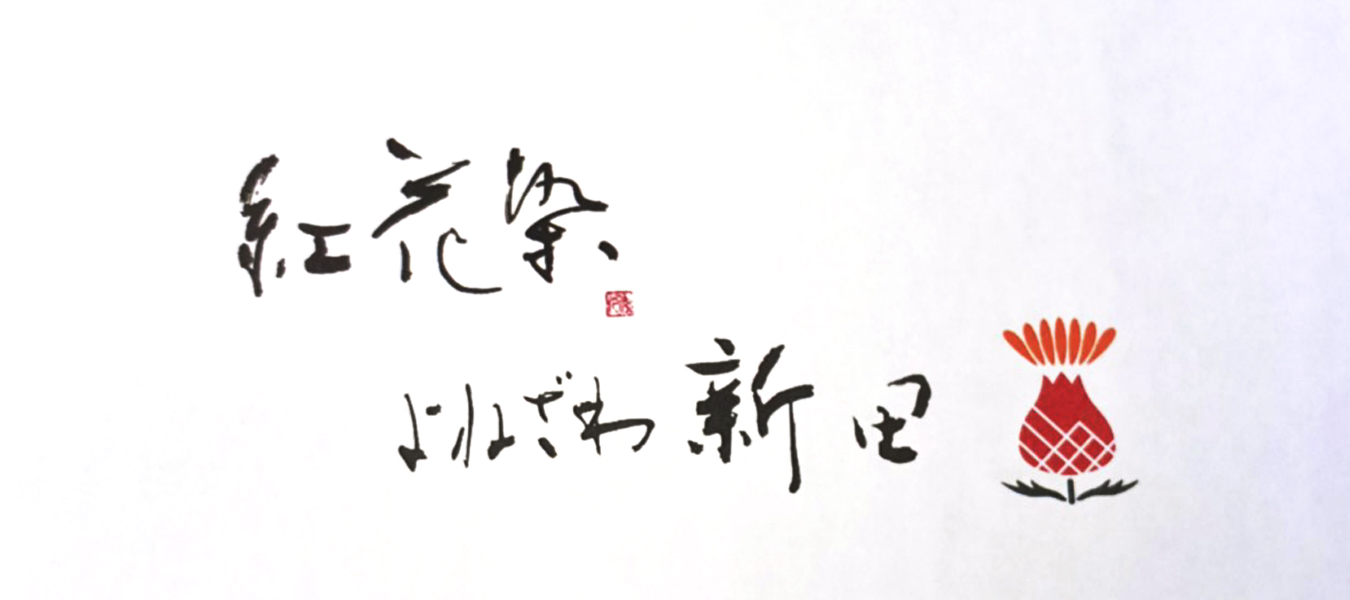 紅花染
よねざわ新田